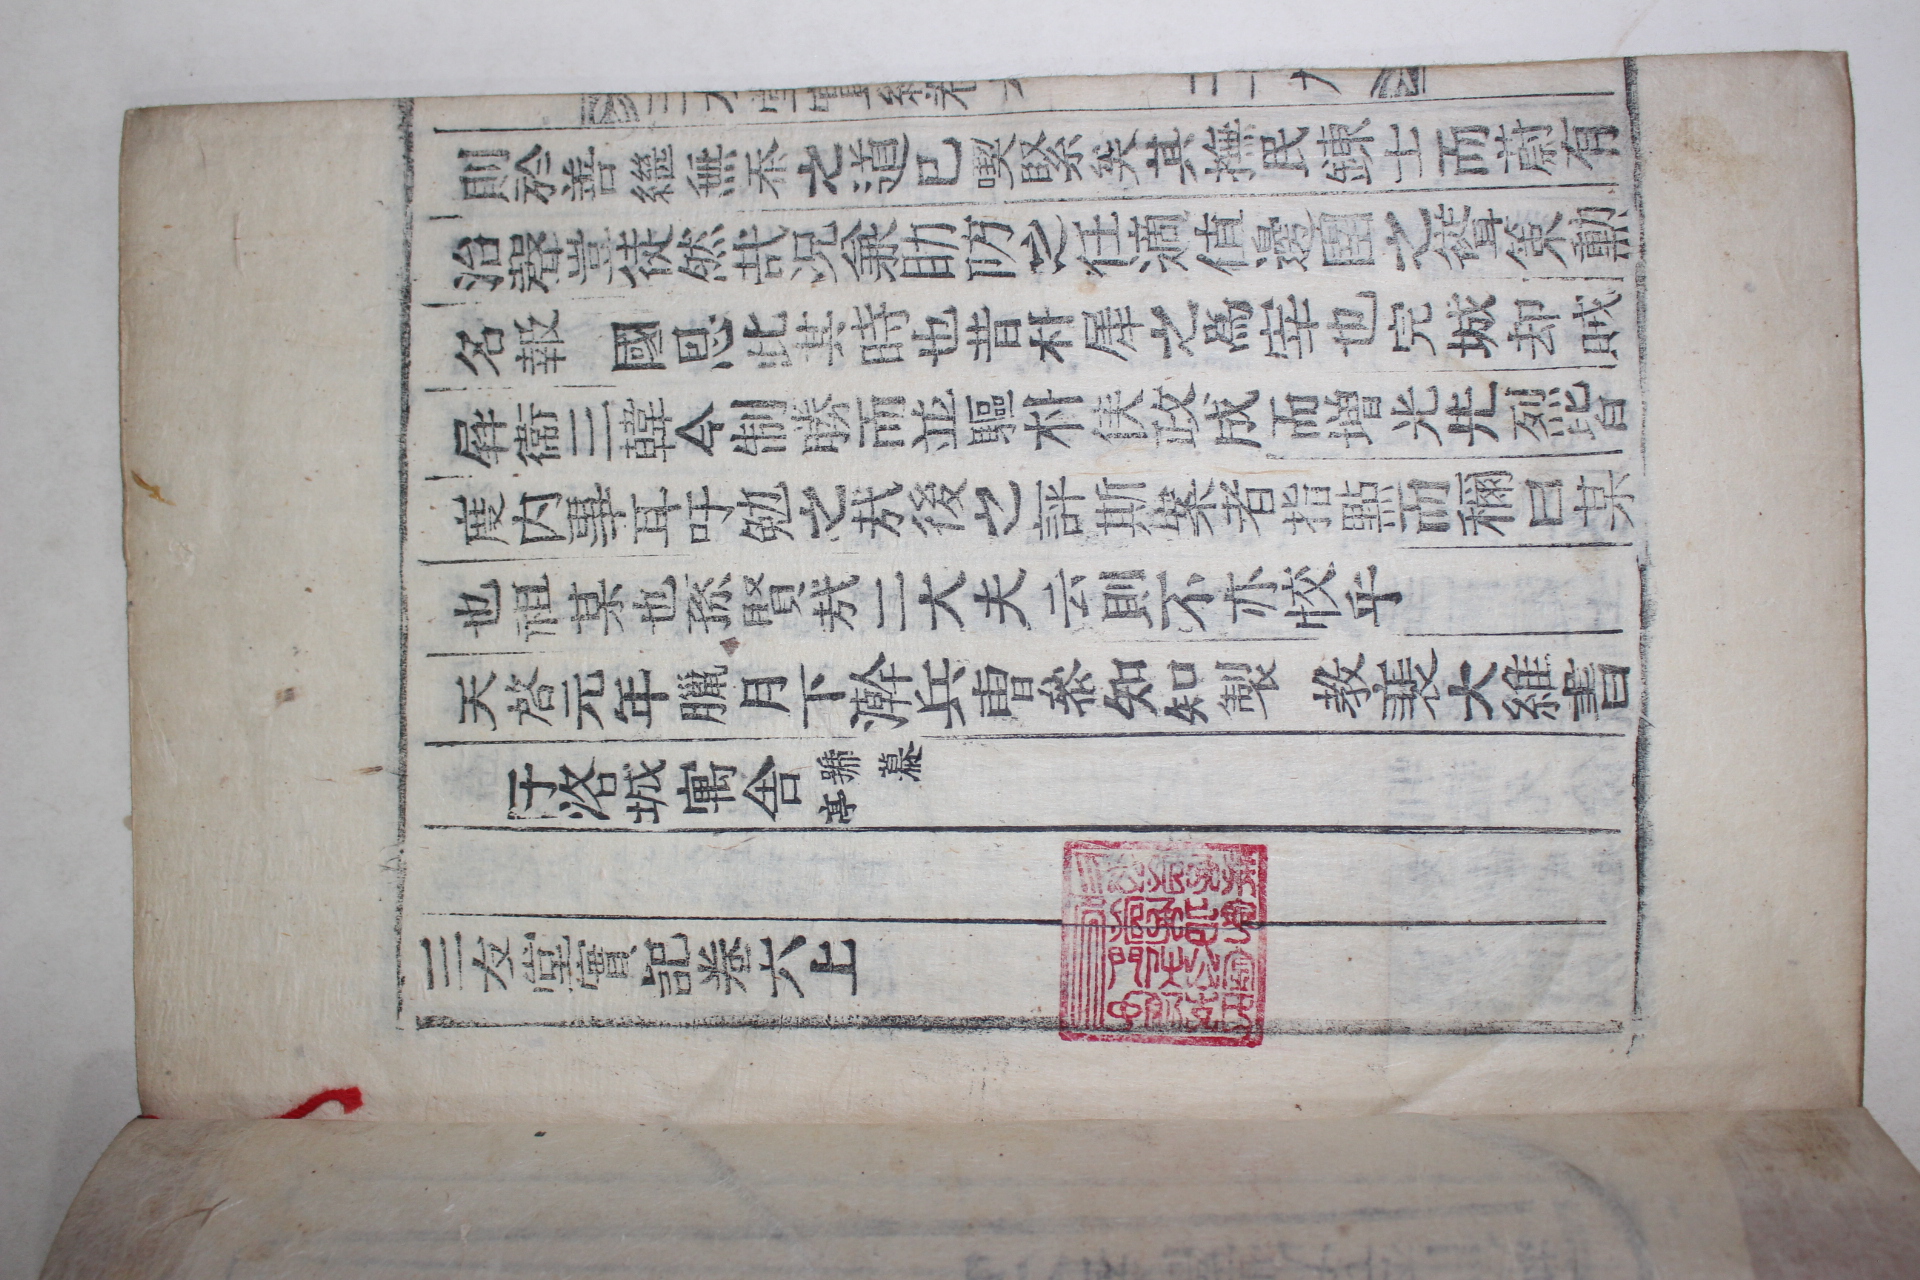 則於善繼無忝之道已喫緊矣其撫民鍊士而蔚有
治聲豈徒然哉况兼助防之任適値邊圉之聳策勳
名報 國恩此其時也昔朴犀之爲宰也完城却賊
屛衛三韓今制勝而並驅朴侯政成而增光先烈皆
度內事耳吁勉之哉後之評斯案者指點而稱曰某
也祖某也孫賢哉二大夫云則不亦恔乎
天啓元年臘月下澣兵曹參知知製 教裴大維書
于洛城寓舍 號慕亭
三友堂實記卷六上
二十九